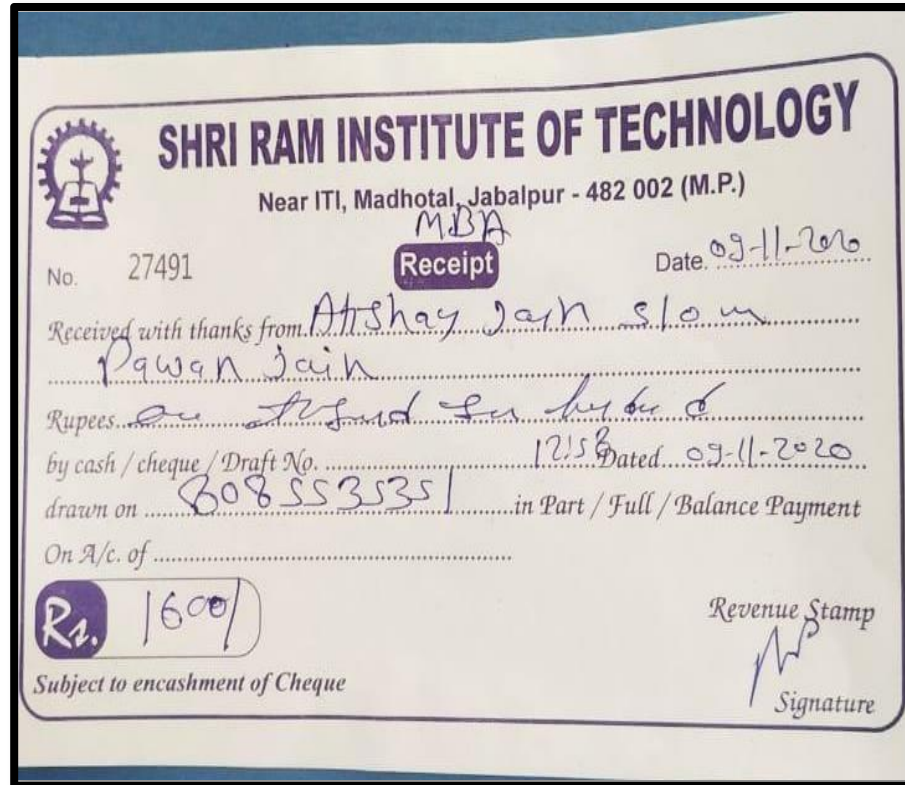 SHRI RAM INSTITUTE OF TECHNOLOGY
Near ITI, Madhotal, Jabalpur - 482 002 (M.P.)
MBA
No. 27491 Receipt Date. 09-11-2020
Received with thanks from. Akshay Jain S/o
Pawan Jain
Rupees
by cash / cheque / Draft No. Dated 09-11-2020
drawn on 8085535351 in Part / Full / Balance Payment
On A/c. of
Rs. 1600/
Revenue Stamp
Subject to encashment of Cheque
Signature